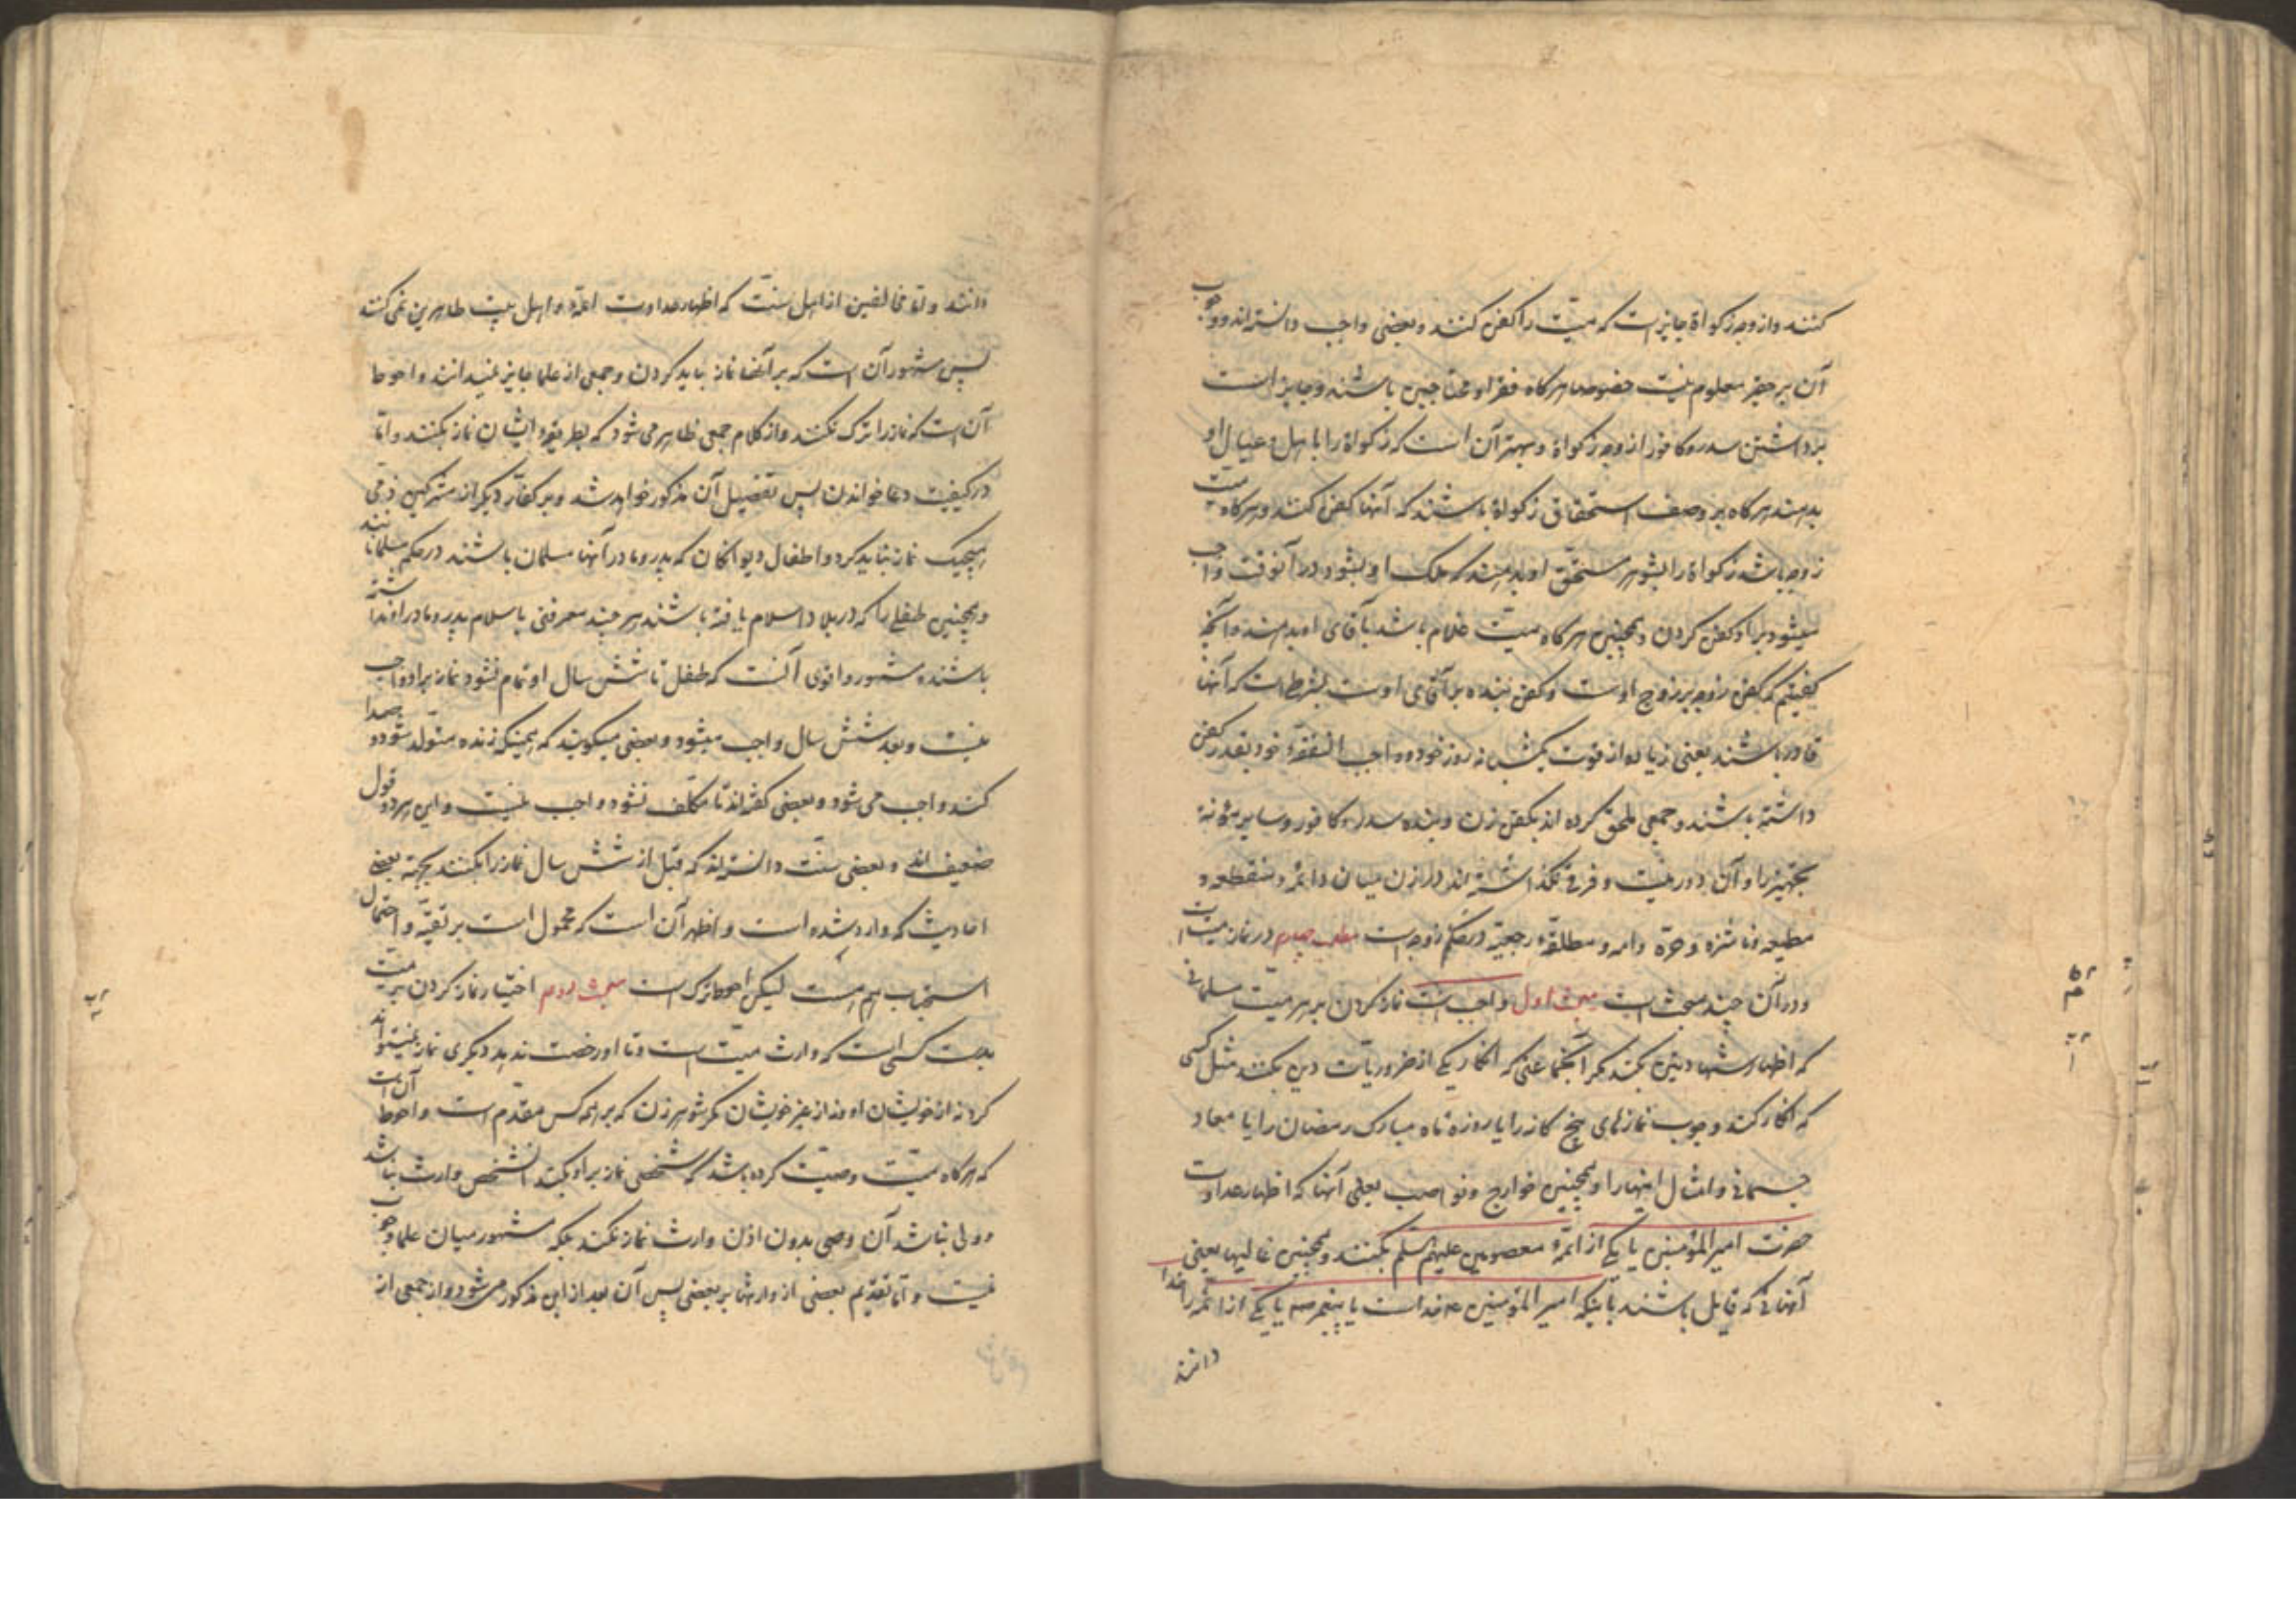 کنند و از وجه زکواة جایز است که میت را کفن کنند و بعضی واجب دانسته‌اند و وجوب
آن بر حقیر معلوم نیست خصوصا هرگاه فقرا و محتاجین باشند و جایز است
برداشتن سدر و کافور از وجه زکواة و بهتر آن است که زکواة را باهل و عیال او
بدهند هرگاه بر وصف استحقاق زکواة باشند که آنها کفن کنند و هرگاه میت
زوجه باشد زکواة را بشوهر مستحق او بدهند که ملک او بشود در آنوقت واجب
میشود بر او کفن کردن و همچنین هرگاه میت غلام باشد بآقای او بدهند و آنچه
گفتیم که کفن زوجه بر زوج اوست و کفن بنده بر آقای اوست بشرطیست که آنها
قادر باشند یعنی زیاده از قوت یکشبانه روز خود و واجب النفقهٔ خود بقدر کفن
داشته باشند و جمعی ملحق کرده اند بکفن زن و بنده سدر و کافور و سایر مؤنهٔ
تجهیز را و آن دور نیست و فرقی نگذاشته‌اند در زن میان دائمه و منقطعه و
مطیعه و ناشزه و حره و امه و مطلقهٔ رجعیه در حکم زوجه است مطلب چهارم در نماز میت است
و در آن چند مبحث است مبحث اول واجب است نماز کردن بر هر میت مسلمانی
که اظهار شهادتین بکند مگر آنجماعتی که انکار یکی از ضروریات دین بکنند مثل کسی
که انکار کند وجوب نمازهای پنج گانه را یا روزه ماه مبارک رمضان را یا معاد
جسمانی و امثال اینها را و همچنین خوارج و نواصب یعنی آنها که اظهار عداوت
حضرت امیرالمؤمنین یا یکی از ائمهٔ معصومین علیهم السلم بکنند و همچنین غالیها یعنی
آنهائی که قایل باشند باینکه امیرالمؤمنین ع خداست یا پیغمر ص یا یکی از ائمه را خدا
دانند
دانند و اما مخالفین از اهل سنت که اظهار عداوت ائمه و اهل بیت طاهرین نمی‌کنند
پس مشهور آن است که بر آنها نماز باید کردن و جمعی از علما جایز نمیدانند و احوط
آن است که نماز را ترک نکنند و از کلام جمعی ظاهر می‌شود که بطریقهٔ ایشان نماز بکنند و اما
در کیفیت دعا خواندن پس تفصیل آن مذکور خواهد شد و بر کفار دیگر از مشرکین و ذمی
هیچیک نماز نباید کرد و اطفال و دیوانگان که پدر و مادر آنها مسلمان باشند در حکم مسلمانانند
و همچنین طفلی را که در بلاد اسلام یافته باشند هر چند معرفتی باسلام پدر و مادر او نداشته
باشند و مشهور و اقوی آنست که طفل تا شش سال او تمام نشود نماز بر او واجب
نیست و بعد شش سال واجب میشود و بعضی میگویند که همینکه زنده متولد شود و صدا
کند واجب می‌شود و بعضی گفته‌اند تا مکلف نشود واجب نیست و این هر دو قول
ضعیف‌اند و بعضی سنت دانسته‌اند که قبل از شش سال نماز را بکنند بجهة بعضی
احادیث که وارد شده است و اظهر آن است که محمول است بر تقیه و احتمال
استحباب هم هست لیکن احوط ترک است مبحث دویم اختیار نماز کردن بر میت
بدست کسی است که وارث میت است و تا او رخصت ندهد دیگری نماز نمیتواند
کرد نه از خویشان او و نه از غیر خویشان مگر شوهر زن که بر همه کس مقدم است و احوط آن است
که هرگاه میت وصیت کرده باشد که شخصی نماز بر او بکند و آنشخص وارث نباشد
و ولی نباشد آن وصی بدون اذن وارث نماز نکند بلکه مشهور میان علما وجوب
نیست و اما تقدیم بعضی از وارثها بر بعضی پس آن بعد از این مذکور می‌شود و از جمعی از